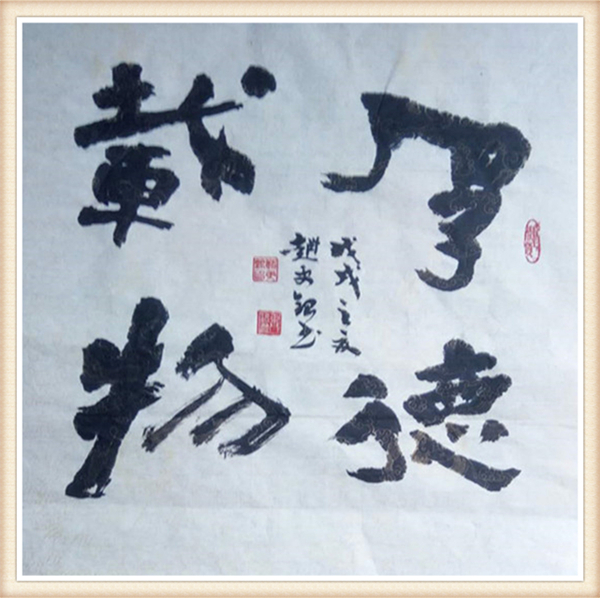 厚德
載物
戊戌之夏
趙文銀书